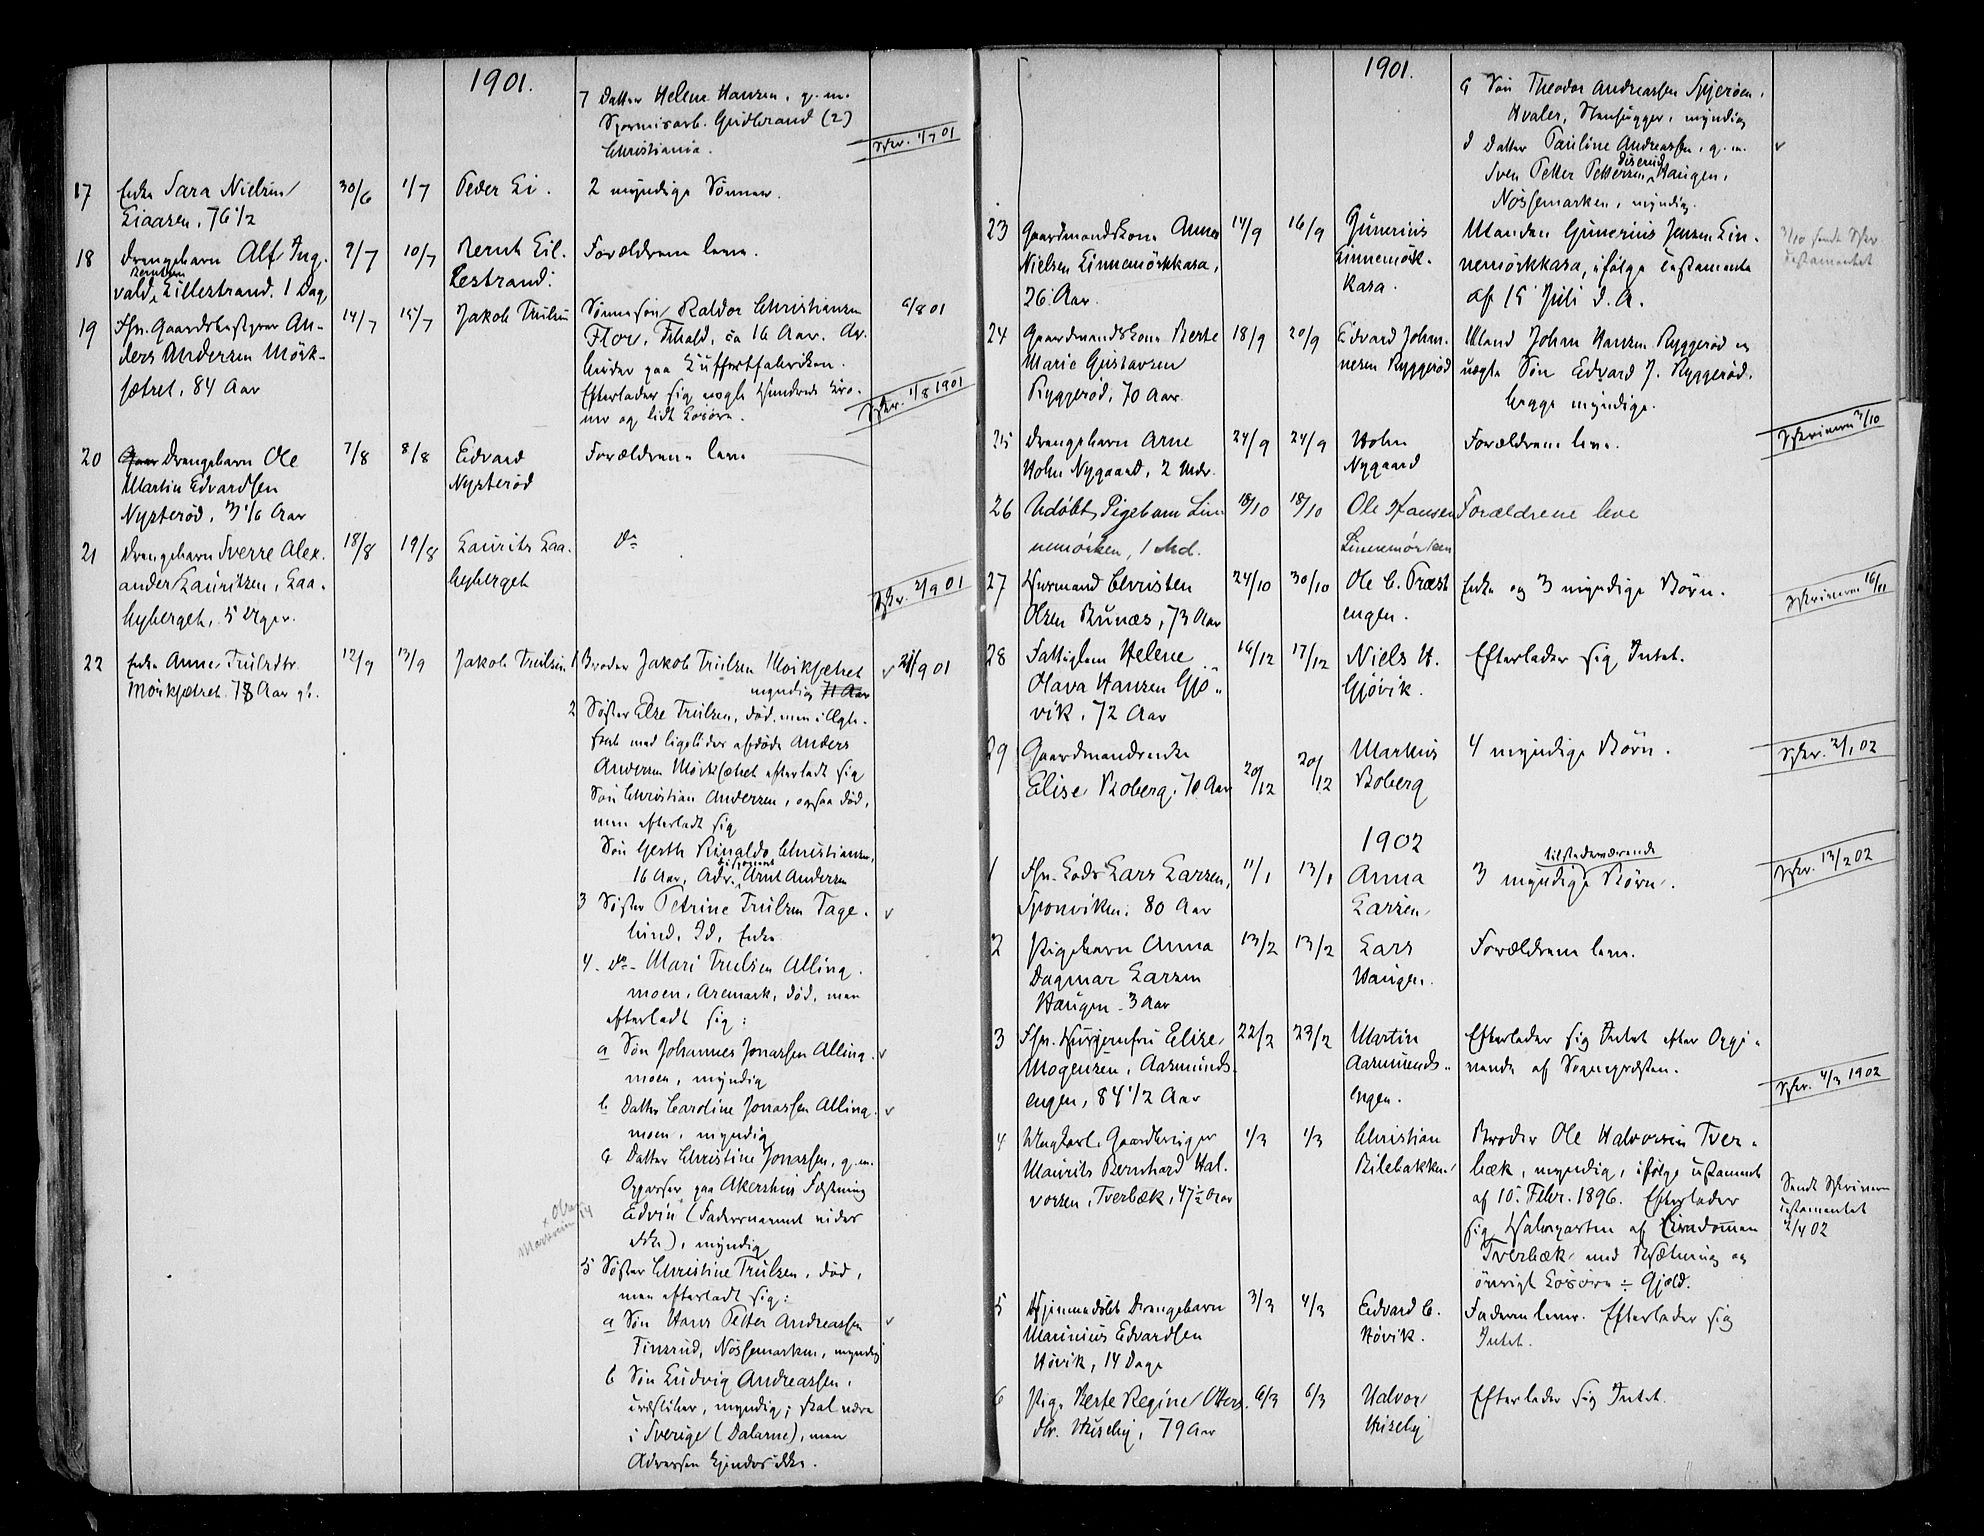 1901.
7 Datter Helene Hansen, g. m.
Sporveisarb. Gudbrand (?)
Christiania.
Skr. 1/7 01
17 Enke Sara Nielsen
Liaasen, 76 1/2
30/6 1/7 Peder Li. 2 myndige Sønner.
18 Drengebarn Alf Ing-
vald Lillestrand. 1 Dag,
9/7 10/7 Bernt Lil-
lestrand: Forældrene leve.
19 Fhv. Gaardbestyrer An-
ders Andersen Mörk-
sætret, 84 Aar
14/7 15/7 Jakob Trulsen
Christiansen
Flor, Fr.hald, ca 16 Aar. Ar-
beider paa Kuffertfabriken.
Efterlader sig nogle Hundrede Kro-
ner og lidt Løsøre.
6/8 01
Skr. 1/8 1901
20 Drengebarn Ole
Martin Edvardsen
Nysterød, 3 1/6 Aar
7/8 8/8 Edvard
Nysterød
Forældrene leve
21 Drengebarn Sverre Alex-
ander Lauritzen, Laa-
byberget, 5 Uger.
18/8 19/8 Laurits Laa-
byberget
do
Skr. 2/9 01
22 Enke Anne Trulsdtr.
Mörksætret. 78 Aar gl.
12/9 13/9 Jakob Trulsen
1 Broder Jakob Trulsen Mörksætret
myndig 71 Aar
21/9 01
2 Søster Else Trulsen, død, men i Ægte-
skab med ligeledes afdøde Anders
Andersen Mörksætret efterladt sig
Søn Christian Andersen, ogsaa død,
men efterladt sig
Søn Gerth Rinaldo Christiansen,
16 Aar, Adr. Arnt Andersen
3 Søster Petrine Trulsen Tage-
lund, Id, Enke.
4. do - Mari Trulsen Alling-
moen, Aremark, død, men
efterladt sig:
a Søn Johannes Jonassen Alling-
moen, myndig
b Datter Caroline Jonassen Alling-
moen, myndig
c Datter Christine Jonassen, g. m.
Oppasser paa Akershus Fæstning
Edvin (Fadernavnet vides
ikke), myndig
5 Søster Christine Trulsen, død,
men efterladt sig:
a Søn Hans Petter Andreassen
Tinsrud, Nössemarken, myndig
b Søn Ludvig Andreassen,
myndig; skal være
i Sverige (Dalarne), men
Adressen kjendes ikke.
1901.
c Søn Theodor Andreassen Spjerøen,
Hvaler, Stenhugger, myndig
d Datter Pauline Andreassen, g. m.
Sven Petter Pettersen Diserud Haugen,
Nössemarken, myndig.
23 Gaardmandskone Anne
Nielsen Linnemörkkasa,
26 Aar.
14/9 16/9 Gunerius
Linnemörk-
kasa.
Manden Gunerius Jensen Lin-
nemörkkasa, ifølge Testamente
af 15 Juli d. A.
3/10 sendt Skr
testamentet
24 Gaardmandskone Berte
Marie Gustavsen
Ryggerød, 70 Aar
18/9 20/9 Edvard Johan-
nesen Ryggerød
Mand Johan Hansen Ryggerød og
uægte Søn Edvard J. Ryggerød,
begge myndige.
25 Drengebarn Arne
Holm Nygaard, 2 Mdr.
24/9 24/9 Holm
Nygaard
Forældrene leve.
Skriveren 3/10
26 Udøbt Pigebarn Lin-
nemörken, 1 Md.
18/10 18/10 Ole Hansen
Linnemörken
Forældrene leve
27 Husmand Christen
Olsen Bunæs, 73 Aar
24/10 30/10 Ole C. Præst
engen.
Enke og 3 myndige Børn.
Skriveren 16/11
28 Fattiglem Helene
Olava Hansen Gjø-
vik, 72 Aar
16/12 17/12 Niels H.
Gjövik.
Efterlader sig Intet.
29 Gaardmandsenke
Elise Boberg, 70 Aar
20/12 20/12 Markus
Boberg
4 myndige Børn.
Skr. 2/1 02
1902
1 Fhv. Lods Lars Larsen,
Sponviken, 80 Aar
11/1 13/1 Anna
Larsen
tilstedeværende
3 myndige Børn.
Skr. 13/2 02
2 Pigebarn Anna
Dagmar Larsen
Haugen. 3 Aar
13/2 13/2 Lars
Haugen.
Forældrene leve.
3 Fhv. Husjomfru Elise
Mogensen, Aasmunds-
engen, 84 1/2 Aar
22/2 23/2 Martin
Aasmunds-
engen.
Efterlader sig Intet efter Opgi-
vende af Sognepræsten.
Skr. 4/3 1902
4 Ungkarl Gaardbruger
Maurits Bernhard Hal-
vorsen, Tverbæk, 47 1/2 Aar
1/3 1/3 Christian
Bilebakken.
Broder Ole Halvorsen Tver-
bæk, myndig, ifølge Testament
af 10. Febr. 1896. Efterlader
sig Halvparten af Eiendommen
Tverbæk med Besætning og
øvrigt Løsøre ÷ Gjæld.
Sendt Skriveren
testamentet
2/4 02
5 Hjemmedöbt Drengebarn
Marinius Edvardsen
Hövik, 14 Dage
3/3 4/3 Edvard C.
Hövik.
Faderen lever. Efterlader sig
Intet.
6 Pige Berte Regine Olsens-
dtr. Huseby, 79 Aar
6/3 6/3 Halvor
Huseby
Efterlader sig Intet.